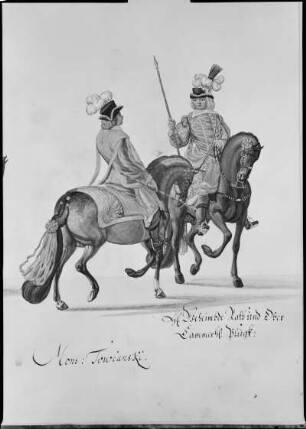 Geheimde Rath und Ober
Cammerh. Pflugk:
Mons: Towianski: